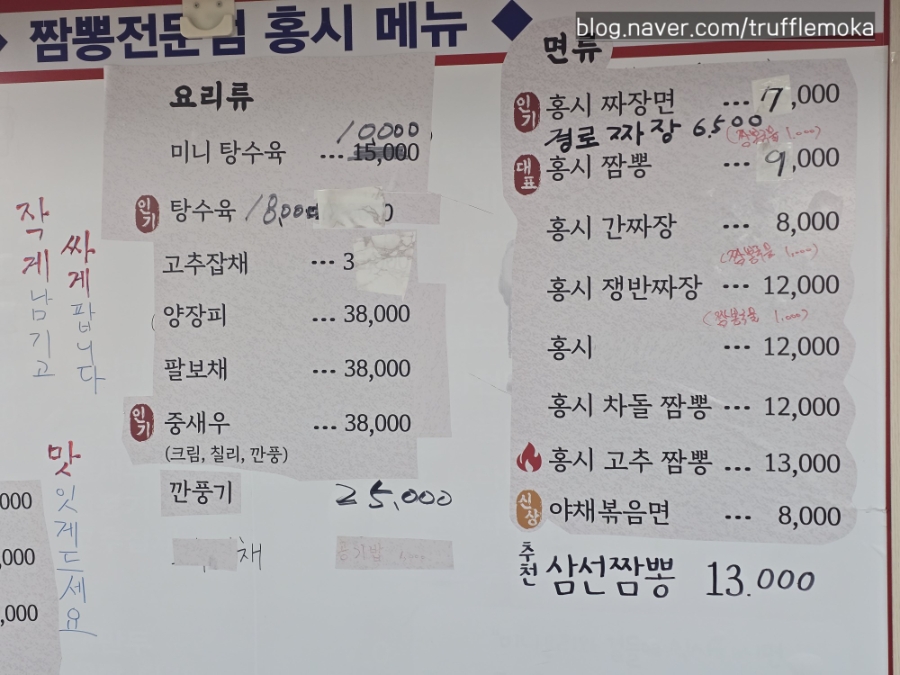 blog.naver.com/trufflemoka
짬뽕전문점 홍시 메뉴
요리류
미니 탕수육 ... 15,000 10,000
인기 탕수육 18,000 0
고추잡채 ... 3
양장피 ... 38,000
팔보채 ... 38,000
인기 중새우 ... 38,000
(크림, 칠리, 깐풍)
깐풍기 25,000
채
면류
인기 홍시 짜장면 ... 7,000
경로 짜장 6500 (짬뽕국물 1,000)
대표 홍시 짬뽕 ... 9,000
홍시 간짜장 ... 8,000
(짬뽕국물 1,000)
홍시 쟁반짜장 ... 12,000
(짬뽕국물 1,000)
홍시 ... 12,000
홍시 차돌 짬뽕 ... 12,000
홍시 고추 짬뽕 ... 13,000
신상 야채볶음면 ... 8,000
추천 삼선짬뽕 13.000
작게 남기고
싸게 팝니다
맛있게드세요
000
,000
,000